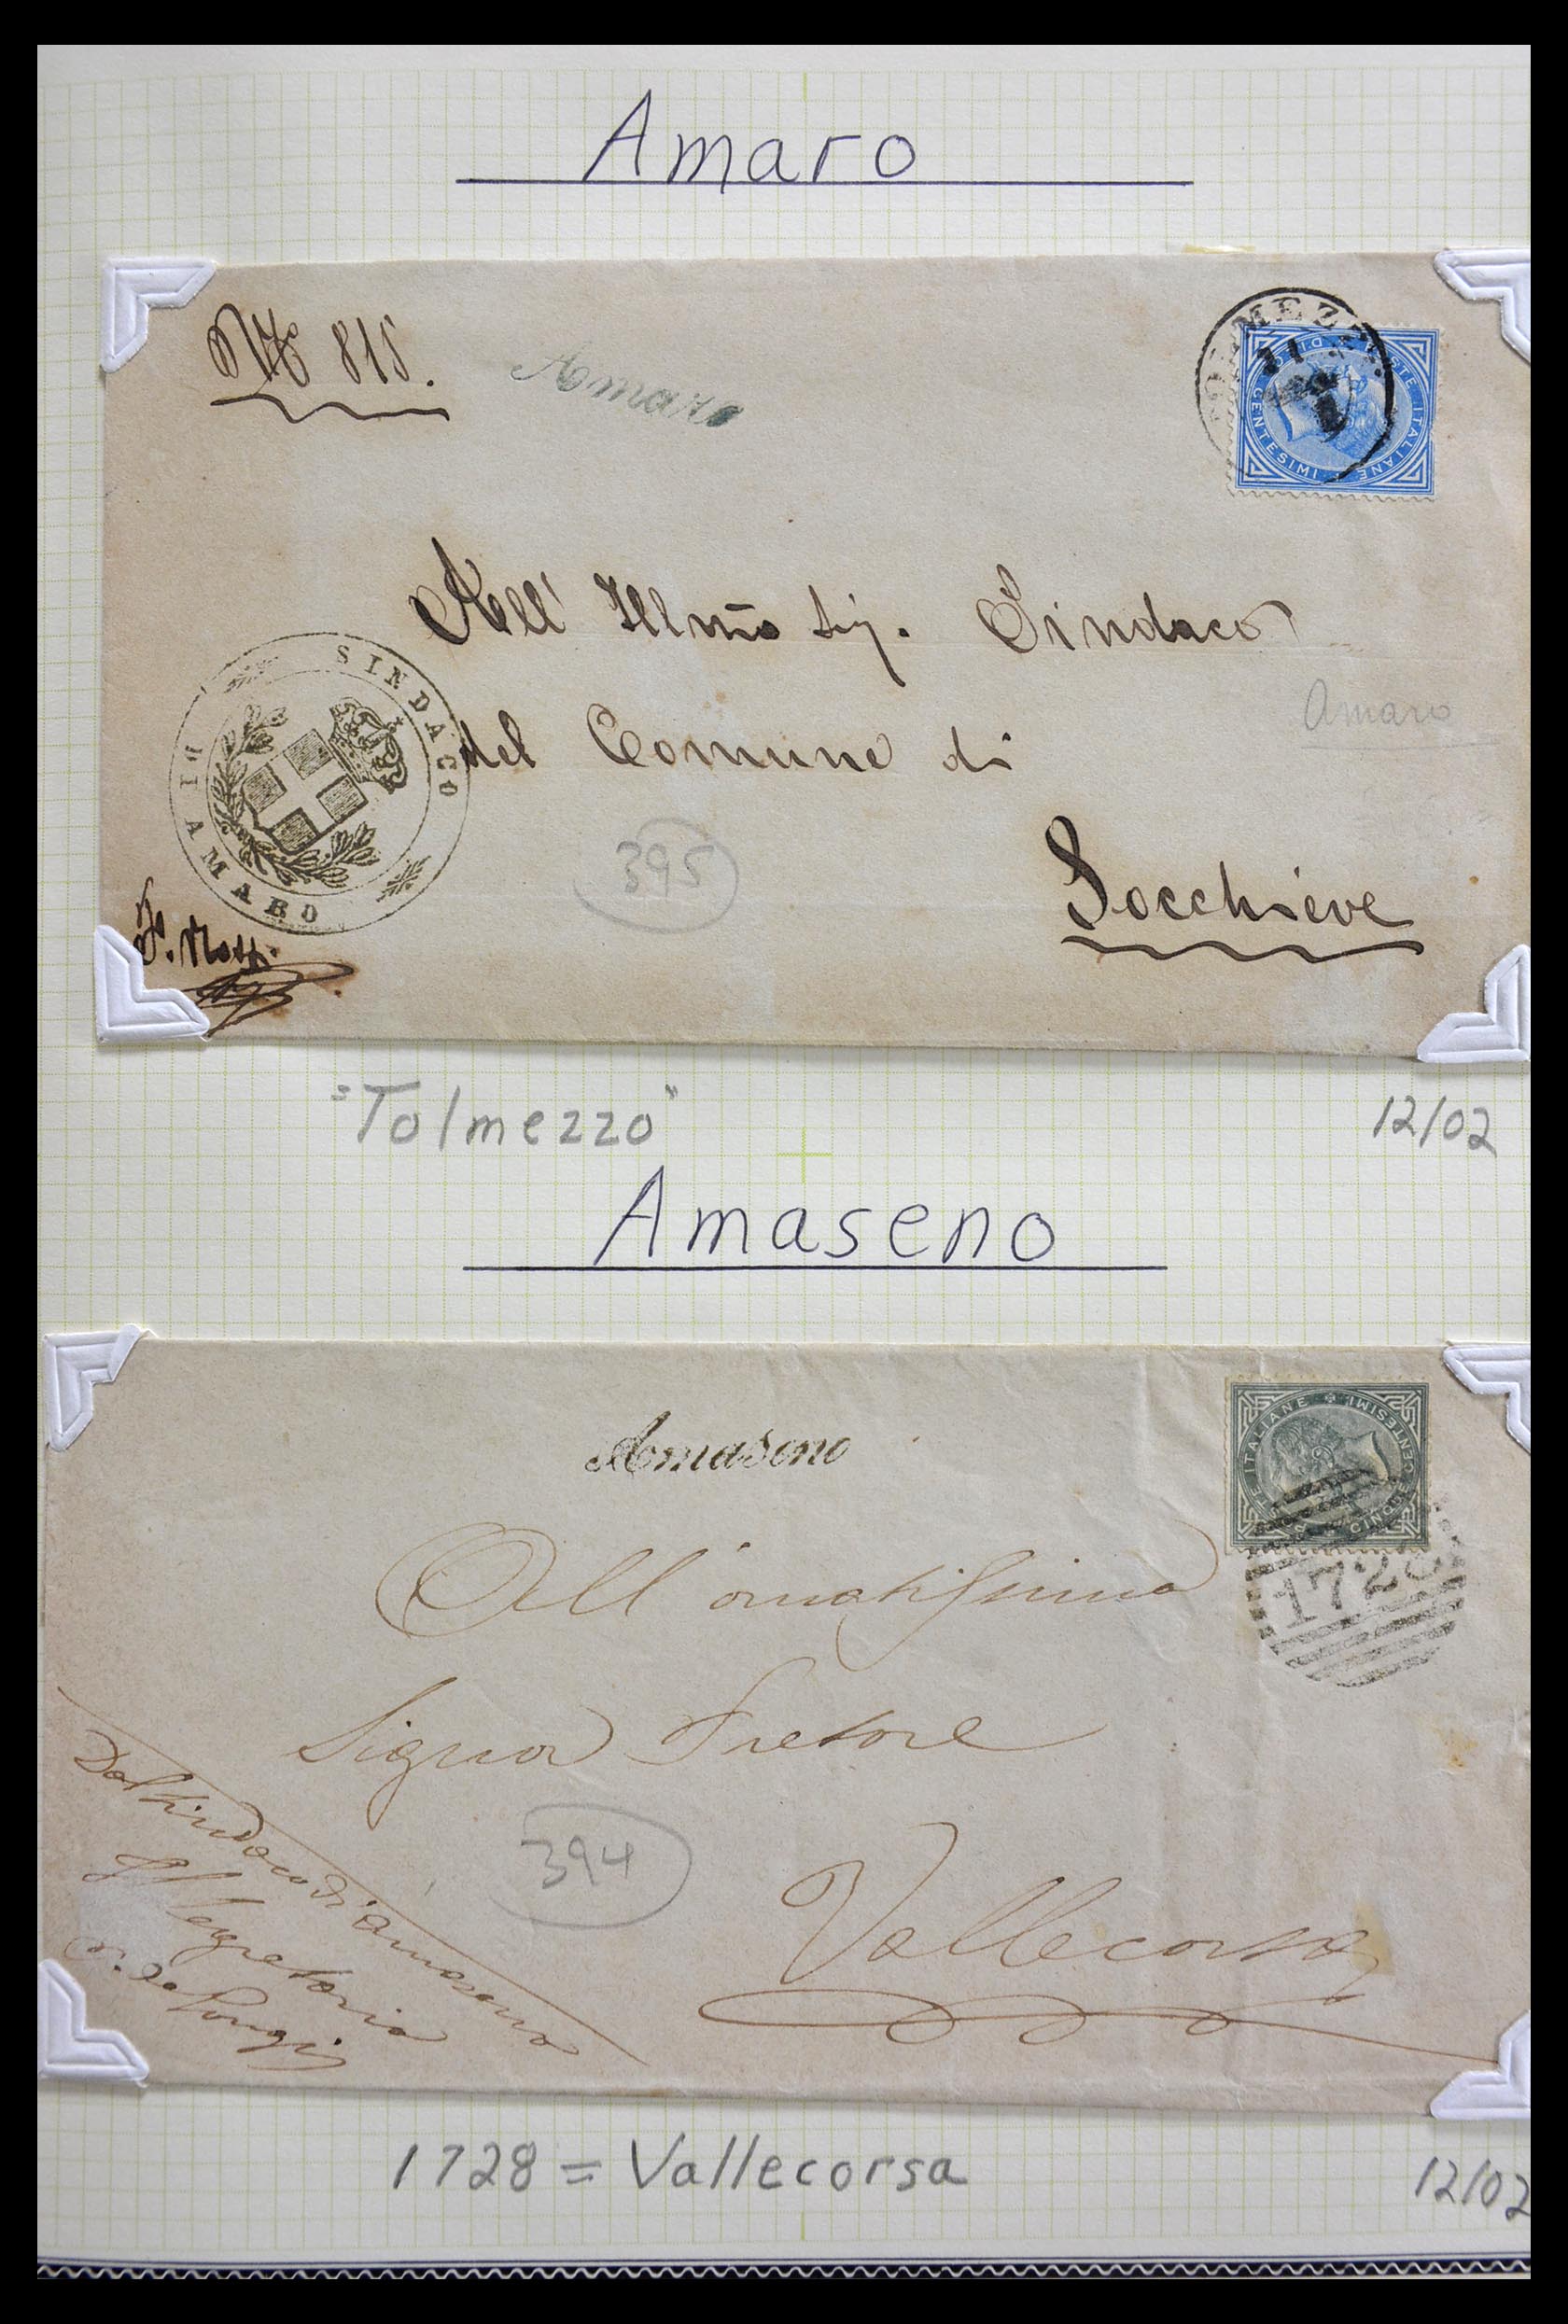 Amaro
No 815.
Amaro
POSTE ITALIANE
CENTESIMI
All' Illmo Sig. Sindaco
SINDACO
DI AMARO
del Comune di
Amaro
395
Socchieve
"Tolmezzo"
12/02
Amaseno
Amaseno
TE ITALIANE
CINQUE CENTESIMI
172
All'ornatissimo
Signor Pretore
394
Vallecorsa
Dal Sindaco di Amaseno
Il Segretario
1728 = Vallecorsa
12/02